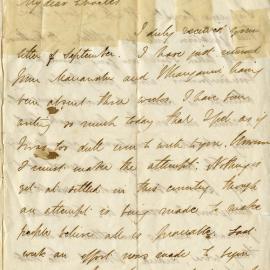 My dear Charles
I duly received your
letter of September. I have just returned
from Waranaki and Whanganui having
been absent three weeks. I have been
writing so much today that I feel as if
I was too dull even to write to you. However
I must make the attempt. Nothing is
yet settled in this country though
an attempt is being made to make
people believe all is peaceable. Last
week an effort was made to begin